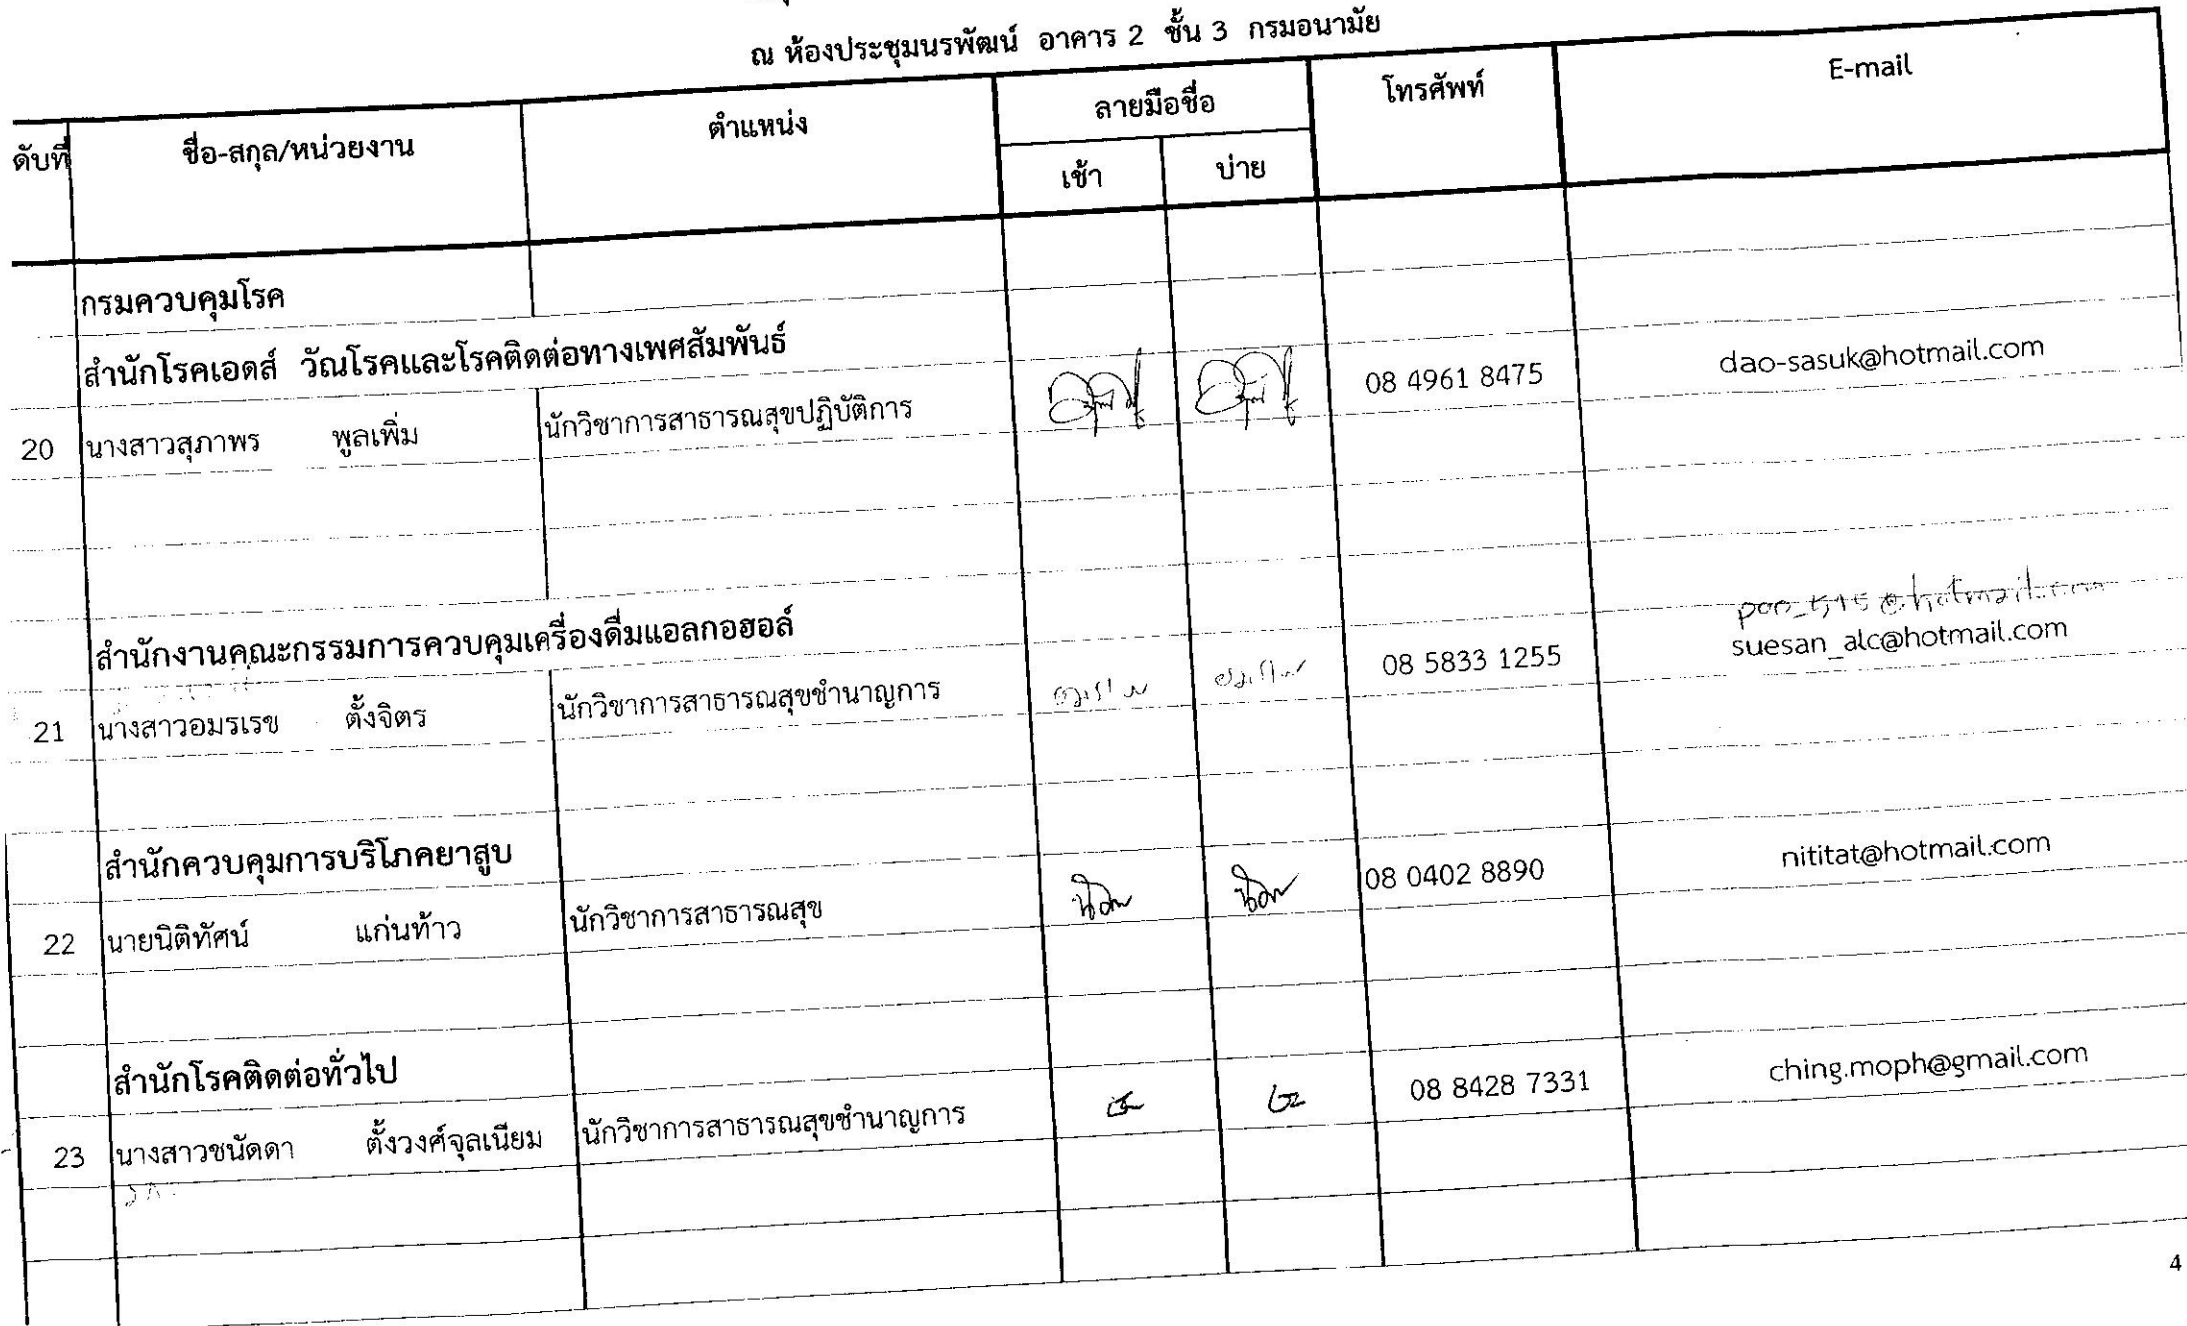 ณ ห้องประชุมนรพัฒน์ อาคาร 2 ชั้น 3 กรมอนามัย
ดับที่ ชื่อ-สกุล/หน่วยงาน ตำแหน่ง ลายมือชื่อ โทรศัพท์ E-mail
เช้า บ่าย
กรมควบคุมโรค
สำนักโรคเอดส์ วัณโรคและโรคติดต่อทางเพศสัมพันธ์
20 นางสาวสุภาพร พูลเพิ่ม นักวิชาการสาธารณสุขปฏิบัติการ 08 4961 8475 dao-sasuk@hotmail.com
สำนักงานคณะกรรมการควบคุมเครื่องดื่มแอลกอฮอล์
21 นางสาวอมรเรข ตั้งจิตร นักวิชาการสาธารณสุขชำนาญการ 08 5833 1255 suesan_alc@hotmail.com
สำนักควบคุมการบริโภคยาสูบ
22 นายนิติทัศน์ แก่นท้าว นักวิชาการสาธารณสุข 08 0402 8890 nititat@hotmail.com
สำนักโรคติดต่อทั่วไป
23 นางสาวชนัดดา ตั้งวงศ์จุลเนียม นักวิชาการสาธารณสุขชำนาญการ 08 8428 7331 ching.moph@gmail.com
4